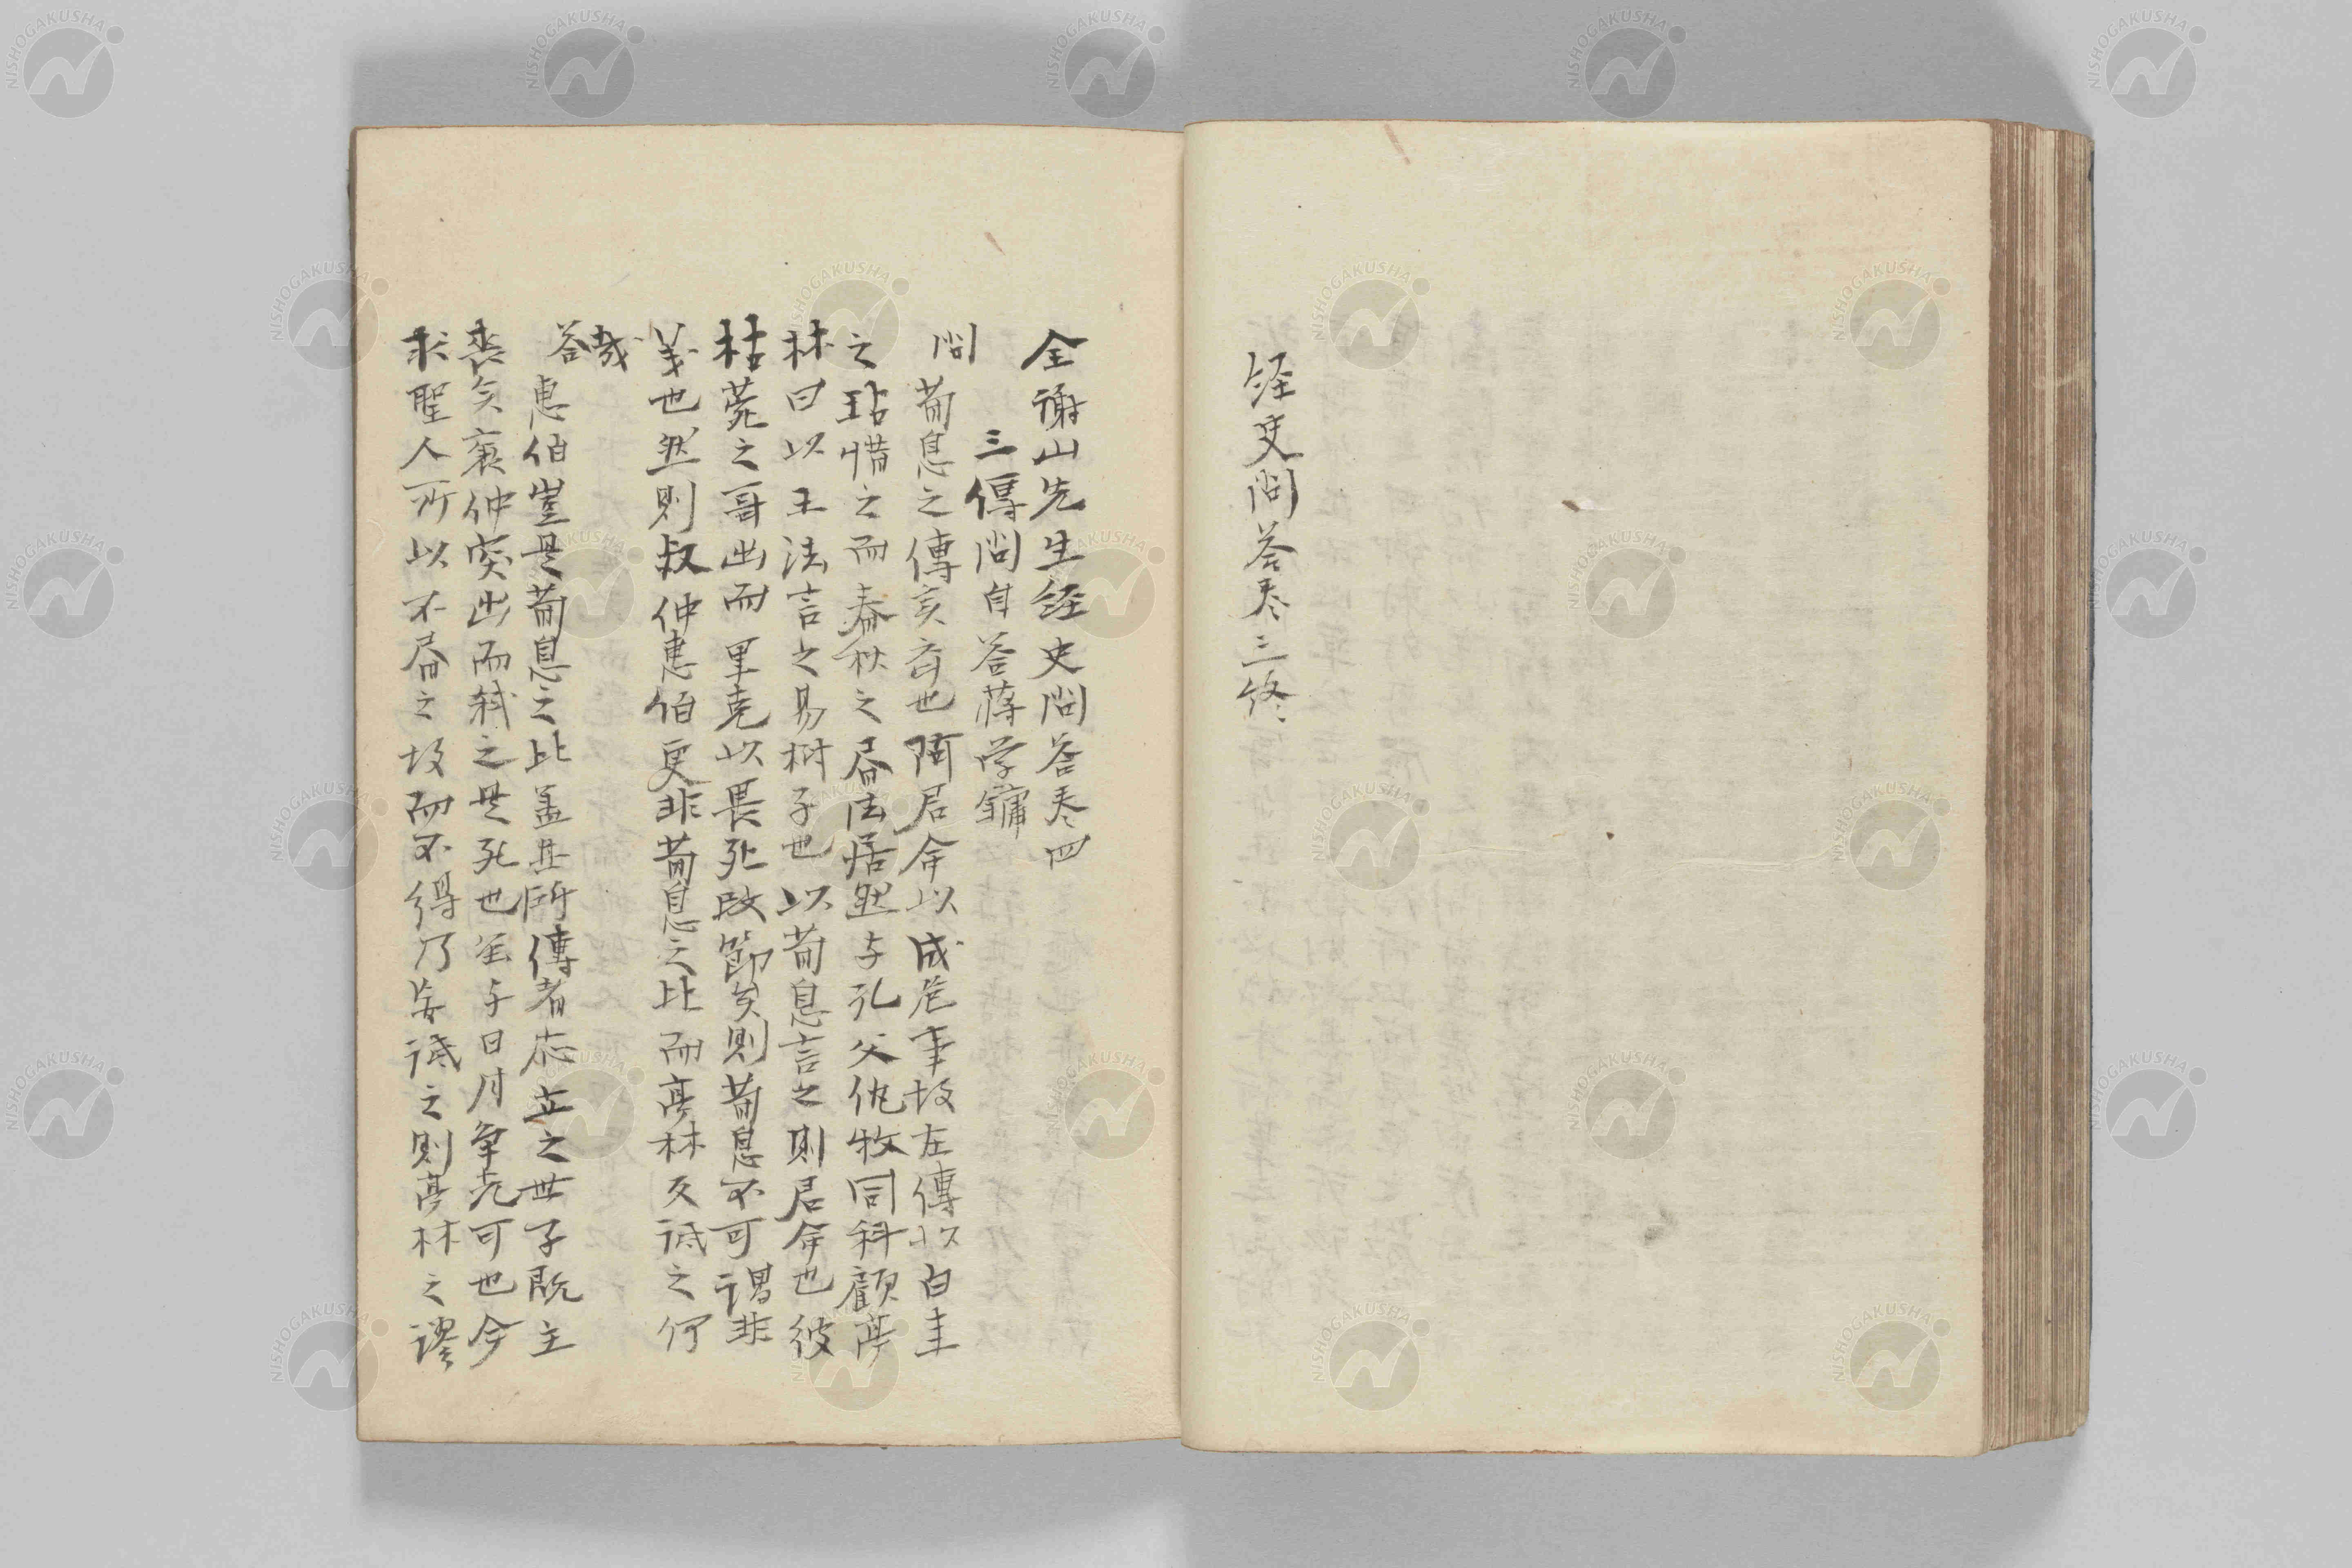 经史问答卷三终
全謝山先生经史问答卷四
三傳问目答蒋学鏞
问 荀息之傳奚斉也阿君命以成危事故左傳以白圭
之玷惜之而春秋之畓法居然与孔父仇牧同科顧亭
林曰以王法言之易树子也以荀息言之则君命也彼
枯菀之哥出而里克以畏死改節矣则荀息不可谓非
义也然则叔仲惠伯更非荀息之比而亭林又诋之何
哉
答 惠伯豈是荀息之比盖其所傳者應立之世子既主
丧矣襄仲突出而弑之其死也至与日月争光可也今
求聖人所以不畓之故而不得乃妄诋之则亭林之谬
NISHOGAKUSHA